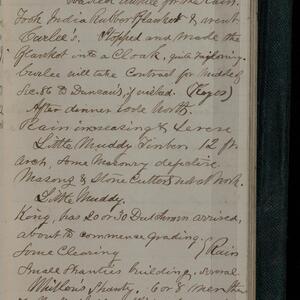 Waited awhile for the Rain.
Took India Rubber Blanket & went
Curlee's. Stopped and made the
Blanket into a Cloak, quite Tailoring.
Curlee will take Contract for Middle
Sec. 86 to Duncan's, if wished. (Keyes)
After dinner rode North.
Rain increasing & severe
Little Muddy Timber 12 ft.
Arch, Some Masonry defective
Masons & Stone Cutters not at work.
Little Muddy.
King, has 20 or 30 Dutchmen arrived,
about to commence grading.
Some Clearing Rain
Small Shanties building, several
Shanty. 6 or 8 men